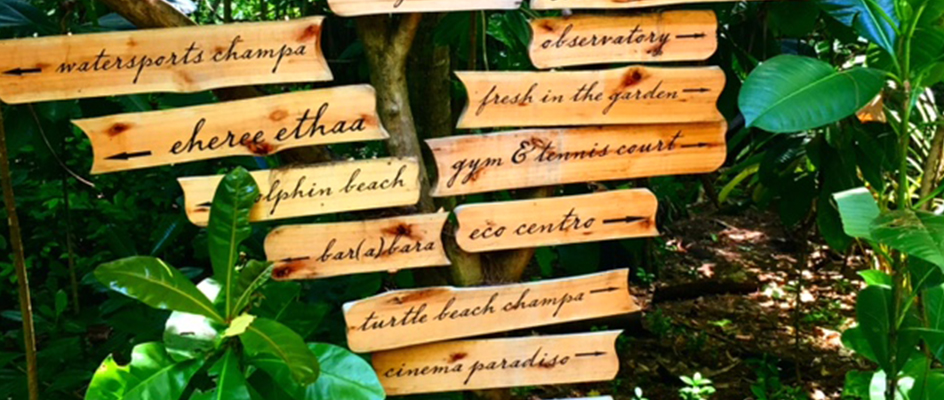 ← watersports champa
← eheree ethaa
← olphin beach
← bar(a)bara
observatory →
fresh in the garden →
gym & tennis court →
eco centro →
turtle beach champa →
cinema paradiso →